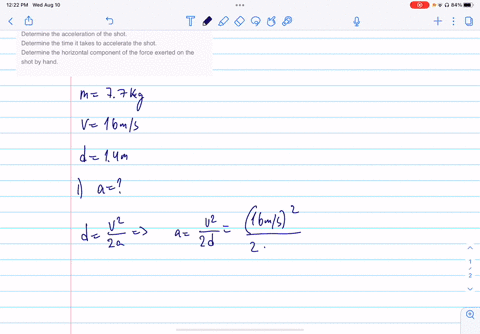 12:22 PM Wed Aug 10
84%
Determine the acceleration of the shot.
Determine the time it takes to accelerate the shot.
Determine the horizontal component of the force exerted on the
shot by hand.
m = 7.7 kg
v = 16 m/s
d = 1.4 m
1) a = ?
d = v²/2a => a = v²/2d = (16 m/s)²/2 ·
1
2